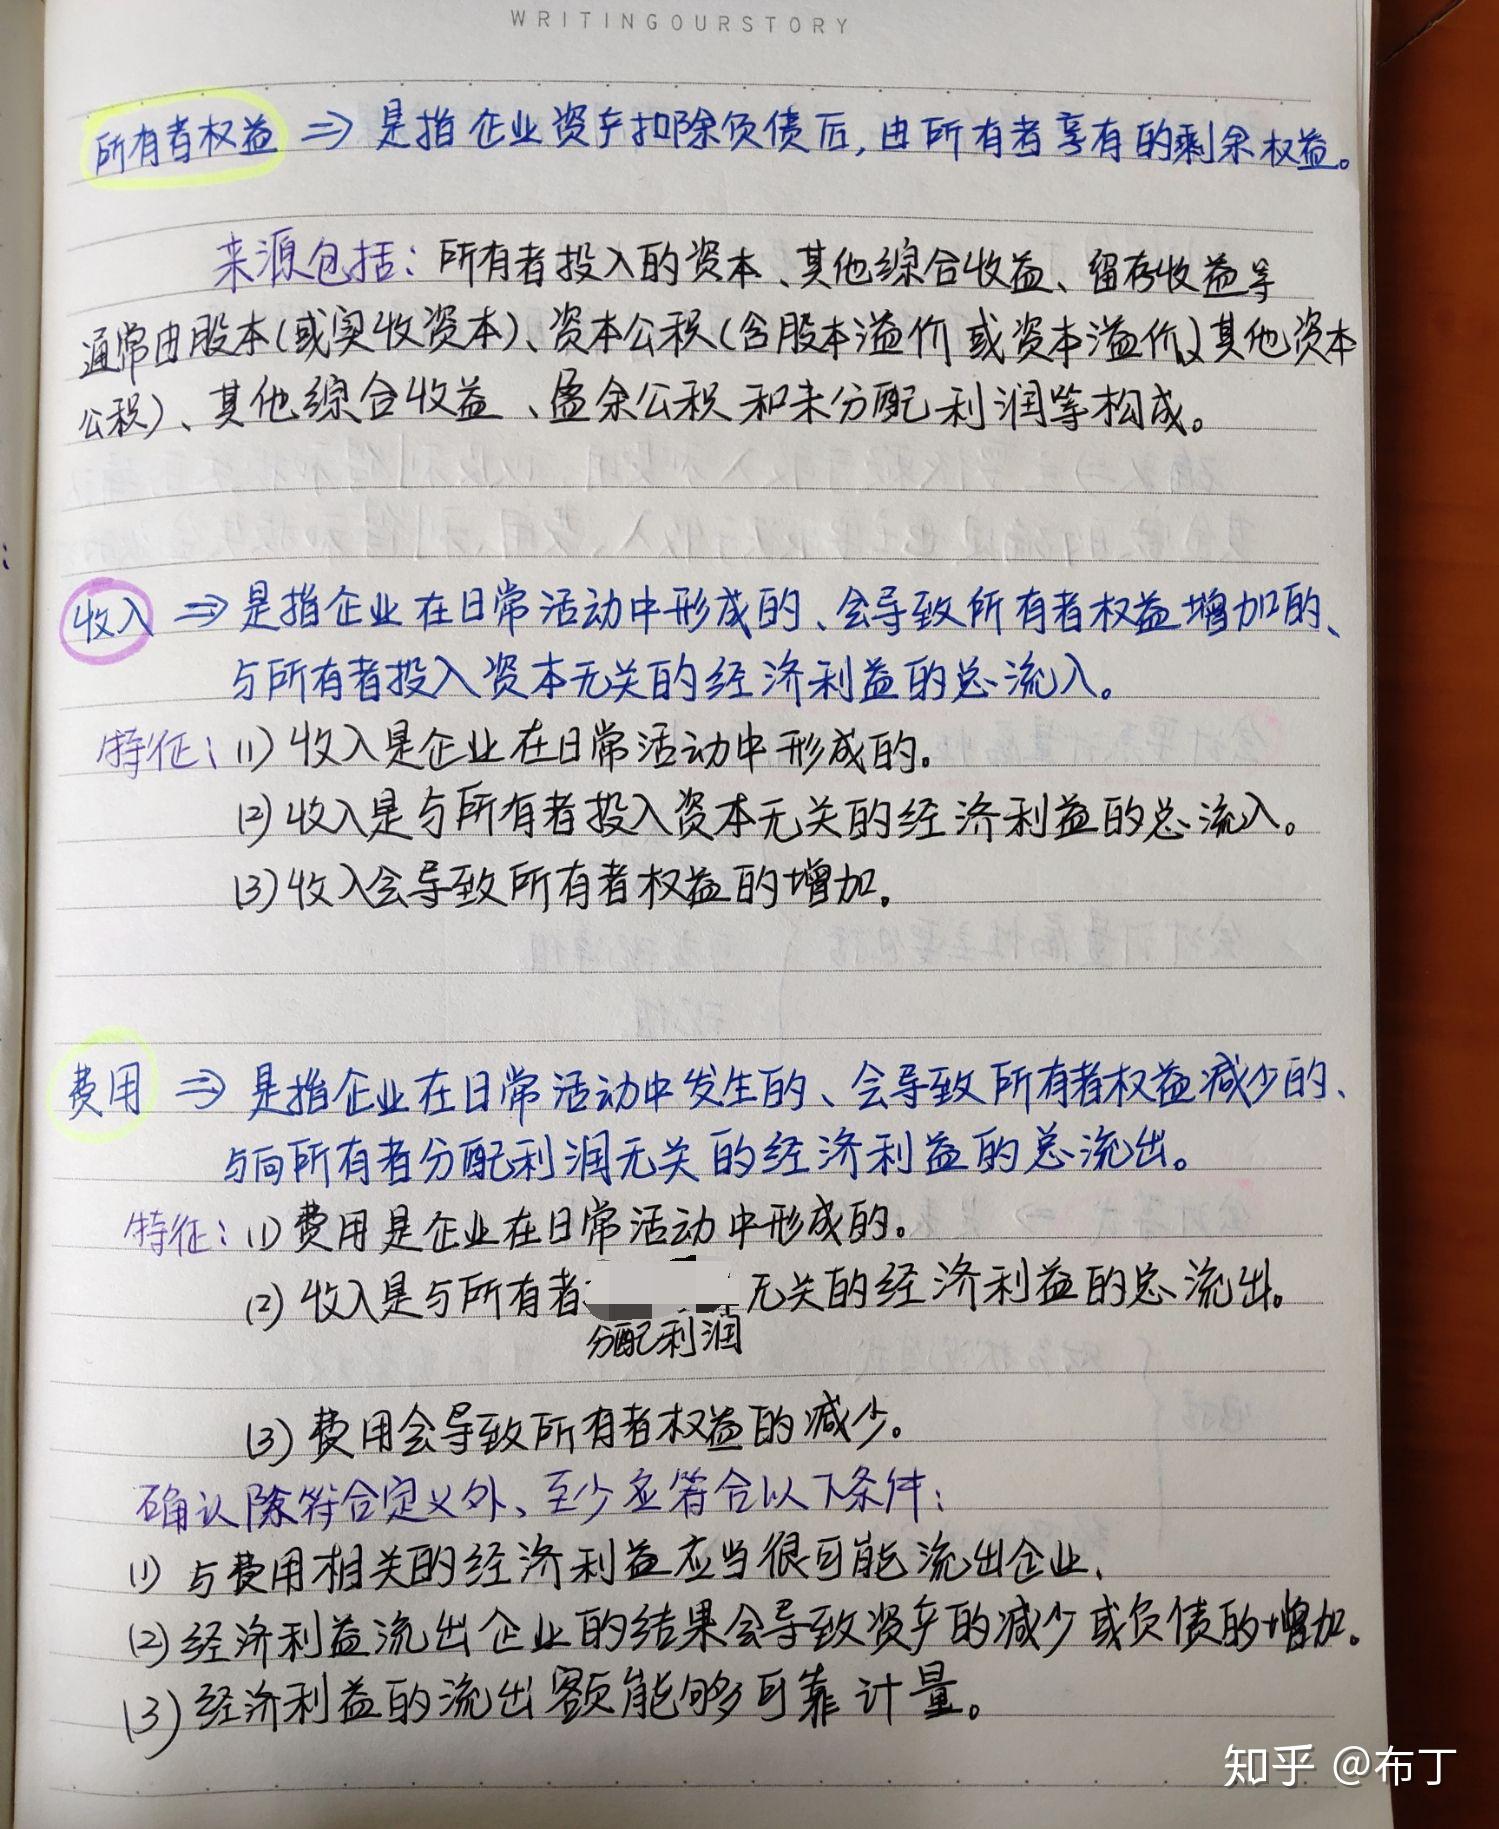 WRITINGOURSTORY
所有者权益 ⇒ 是指企业资产扣除负债后,由所有者享有的剩余权益。
来源包括:所有者投入的资本、其他综合收益、留存收益等
通常由股本(或实收资本)、资本公积(含股本溢价或资本溢价、其他资本
公积)、其他综合收益、盈余公积和未分配利润等构成。
收入 ⇒ 是指企业在日常活动中形成的、会导致所有者权益增加的、
与所有者投入资本无关的经济利益的总流入。
特征:(1)收入是企业在日常活动中形成的。
(2)收入是与所有者投入资本无关的经济利益的总流入。
(3)收入会导致所有者权益的增加。
费用 ⇒ 是指企业在日常活动中发生的、会导致所有者权益减少的、
与向所有者分配利润无关的经济利益的总流出。
特征:(1)费用是企业在日常活动中形成的。
(2)收入是与所有者 无关的经济利益的总流出。
分配利润
(3)费用会导致所有者权益的减少。
确认除符合定义外、至少应符合以下条件:
(1)与费用相关的经济利益应当很可能流出企业、
(2)经济利益流出企业的结果会导致资产的减少或负债的增加。
(3)经济利益的流出额能够可靠计量。
知乎 @布丁